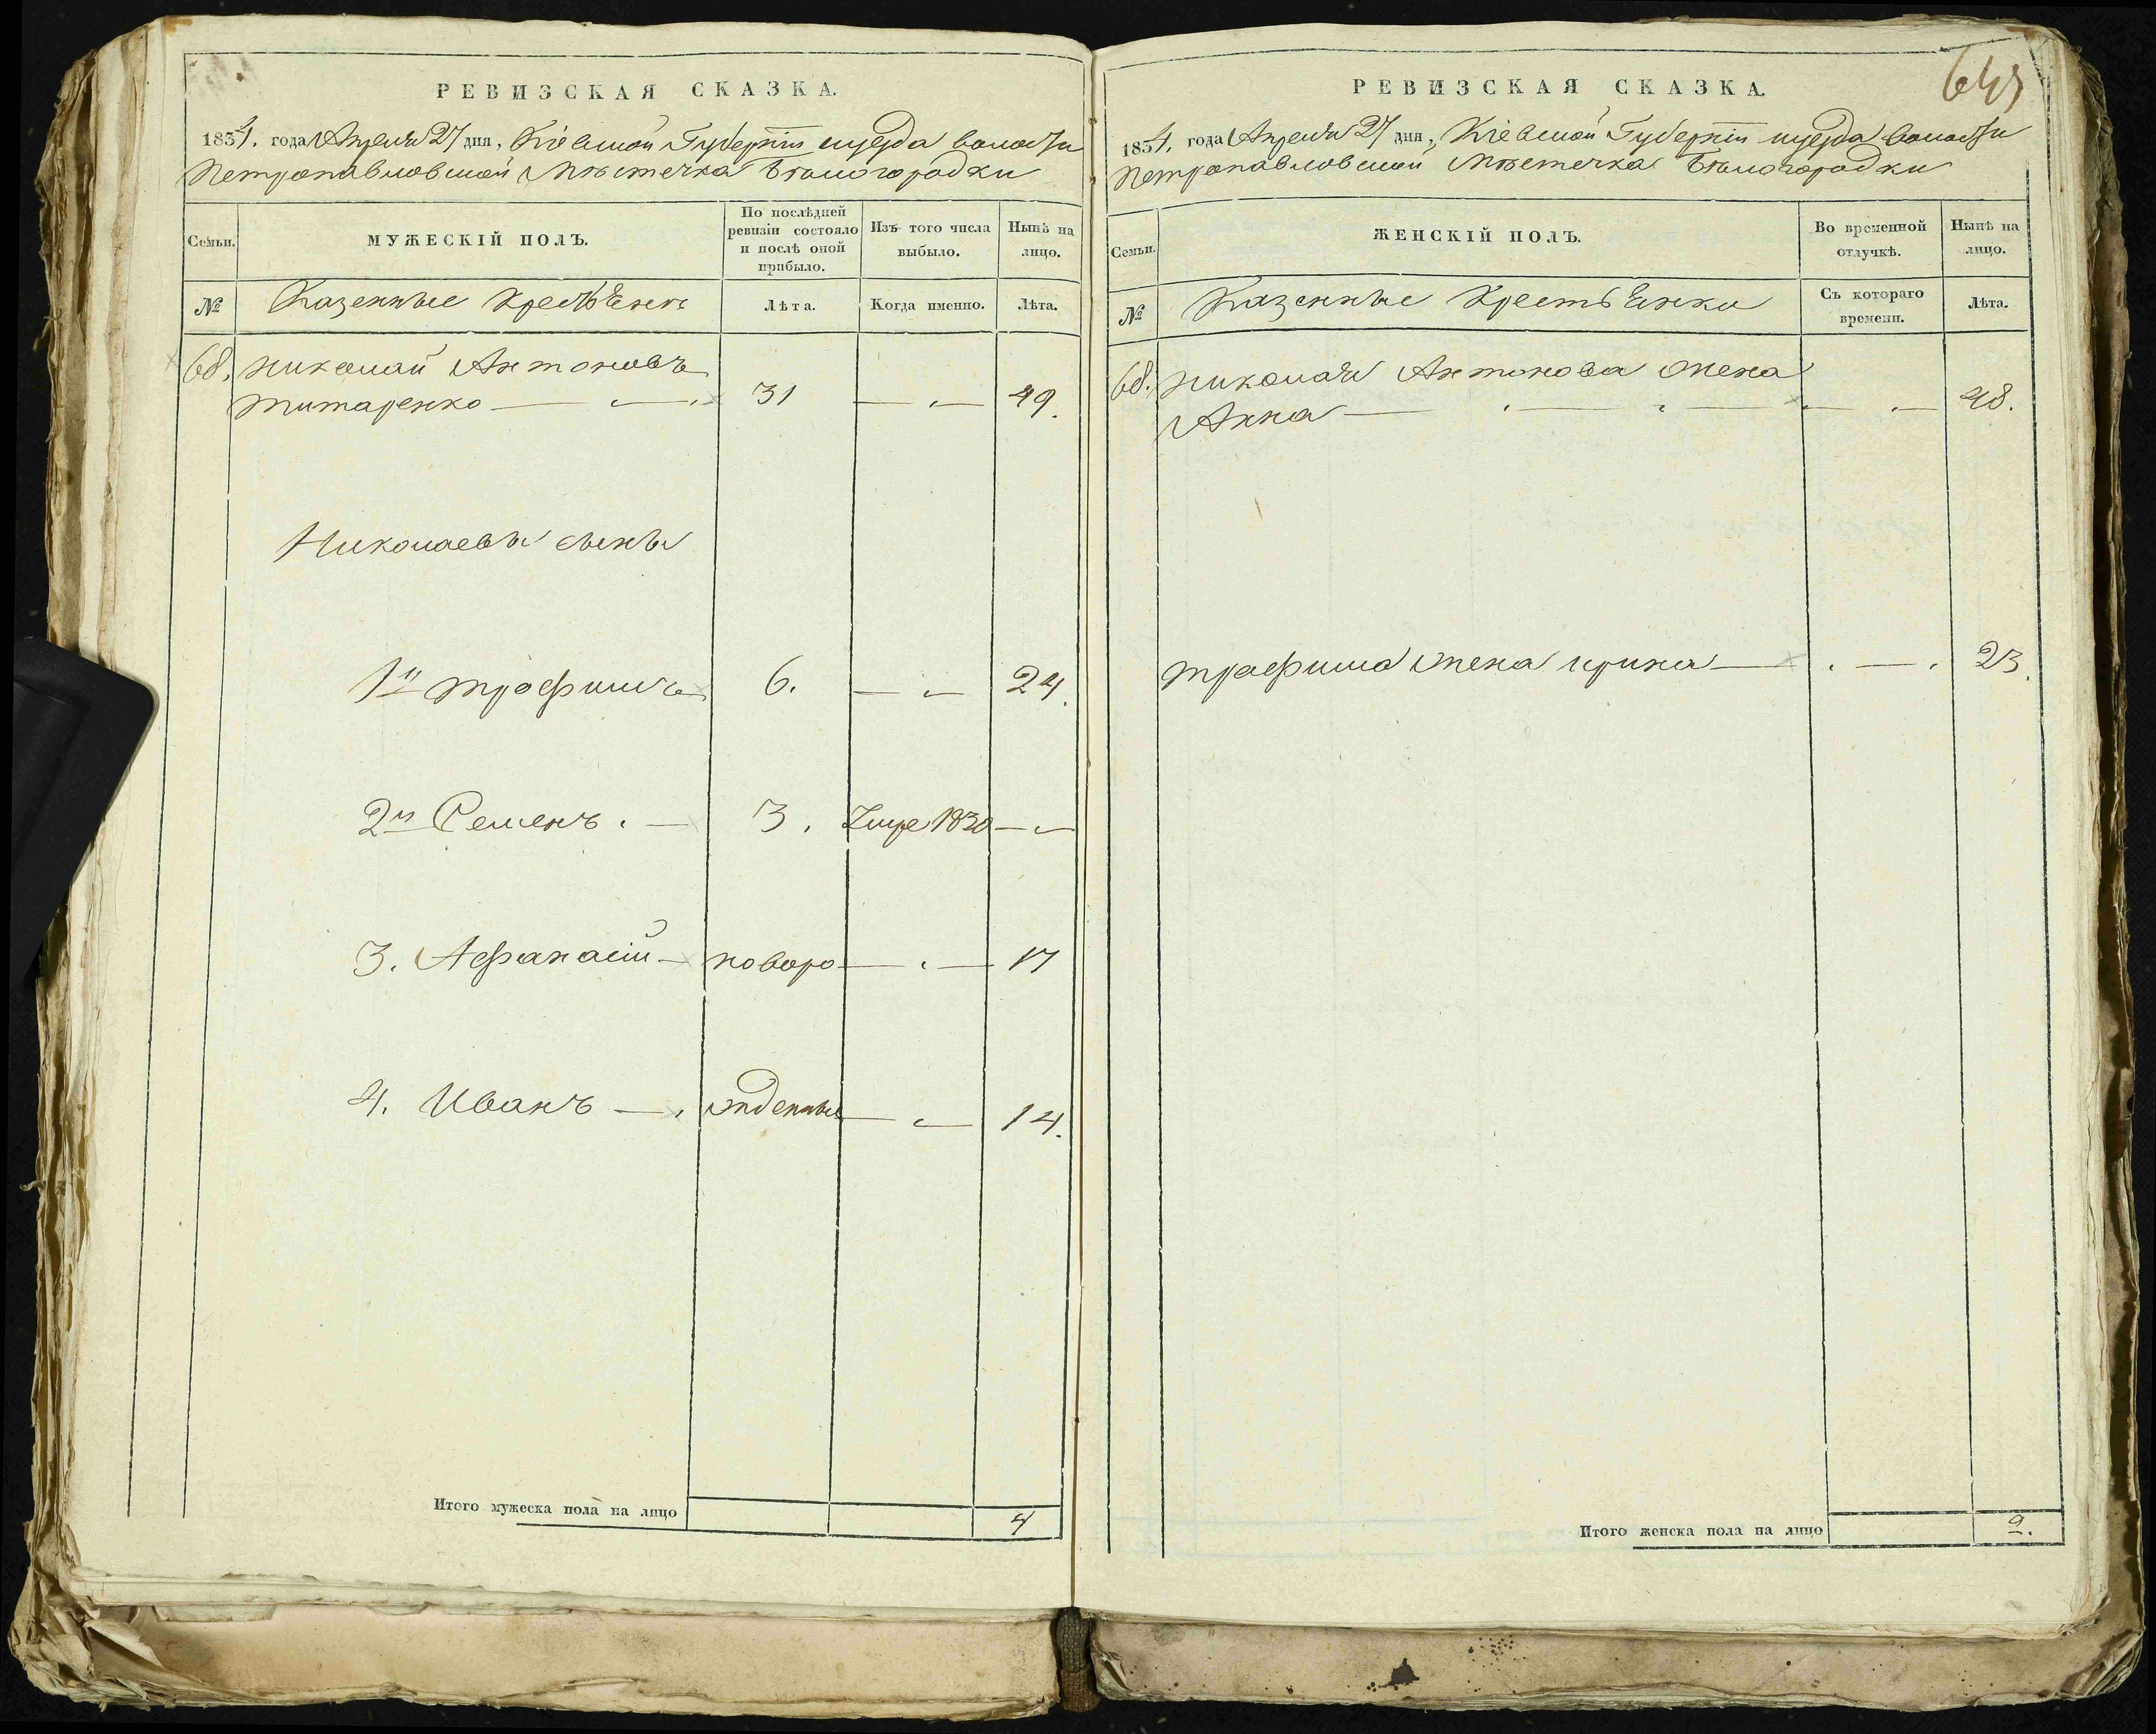 РЕВИЗСКАЯ СКАЗКА.
1834. года Апреля 27 дня, Кіевской Губерніи иуезда волости
Петропавловской Мѣстечка Бѣлогородки
Семьи.
МУЖЕСКІЙ ПОЛЪ.
По послѣдней
ревизіи состояло
и послѣ оной
прибыло.
Изъ того числа
выбыло.
Нынѣ на
лицо.
№
Казенные Крестьяне
Лѣта.
Когда именно.
Лѣта.
68. Николай Антоновъ
Титаренко 31 49.
Николаевы сыны
1й Трофимъ 6. 24.
2й Семенъ. 3. Умре 1830
3. Афанасій новоро 17
4. Иванъ жденные 14.
Итого мужеска пола на лицо 4
РЕВИЗСКАЯ СКАЗКА.
1834. года Апреля 27 дня, Кіевской Губерніи иуезда волости
Петропавловской Мѣстечка Бѣлогородки
Семьи.
ЖЕНСКІЙ ПОЛЪ.
Во временной
отлучкѣ.
Нынѣ на
лицо.
№
Казенные Крестьянки
Съ котораго
времени.
Лѣта.
68. Николая Антонова жена
Анна 48.
Трофима жена Ирина 23.
Итого женска пола на лицо 2.